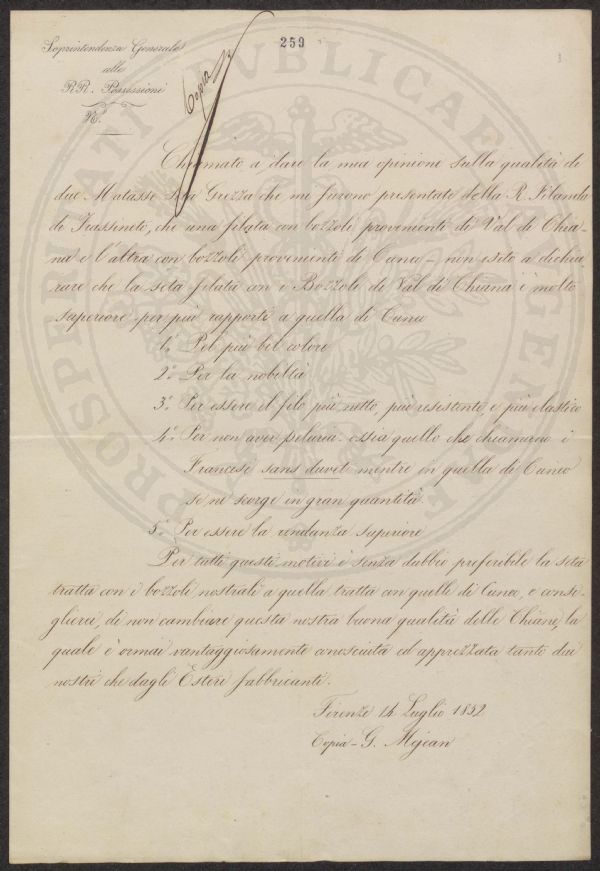 259
Soprintendenza Generale
alle
RR. Possessioni
N.°
Copia
Chiamato a dare la mia opinione sulla qualità di
due Matasse Seta Grezza che mi furono presentate della R. Filanda
di Frassineto, che una filata con bozzoli provenienti di Val di Chia-
na e l'altra con bozzoli provenienti di Cuneo – non esito a dichia
rare che la seta filata con i Bozzoli di Val di Chiana è molto
superiore per più rapporti a quella di Cuneo
1.° Pel più bel colore
2.° Per la nobiltà
3.° Per essere il filo più netto, più resistente, e più elastico
4.° Per non aver peluria ossia quello che chiamano i
Francesi sans duvet mentre in quella di Cuneo
se ne scorge in gran quantità.
5.° Per essere la rendanza superiore
Per tutti questi motivi è senza dubbio preferibile la seta
tratta con i bozzoli nostrali a quella tratta con quelli di Cuneo, e consi-
glierei, di non cambiare questa nostra buona qualità delle Chiane, la
quale è ormai vantaggiosamente conosciuta ed apprezzata tanto dai
nostri che dagli Esteri fabbricanti.
Firenze 14 Luglio 1852
Copia – G. Mejean
PROSPERITATI PUBLICAE AUGENDAE